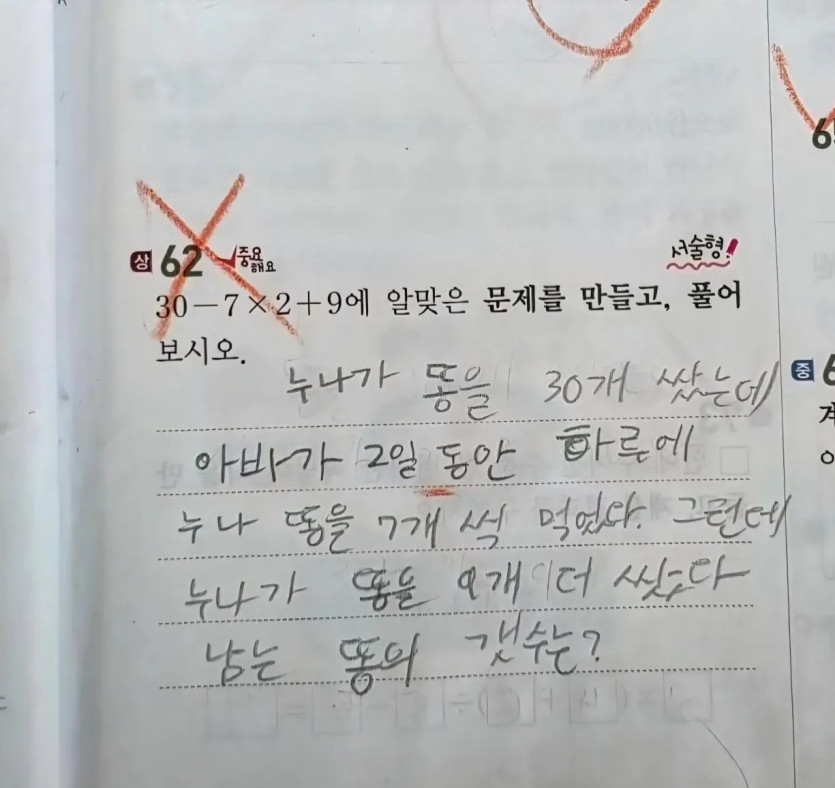 상 62 중요해요
서술형!
30-7×2+9에 알맞은 문제를 만들고, 풀어
보시오.
누나가 똥을 30개 쌌는데
아바가 2일 동안 하루에
누나 똥을 7개 씩 먹었다. 그런데
누나가 똥을 9개 더 쌌다
남는 똥의 갯수는?
중 6